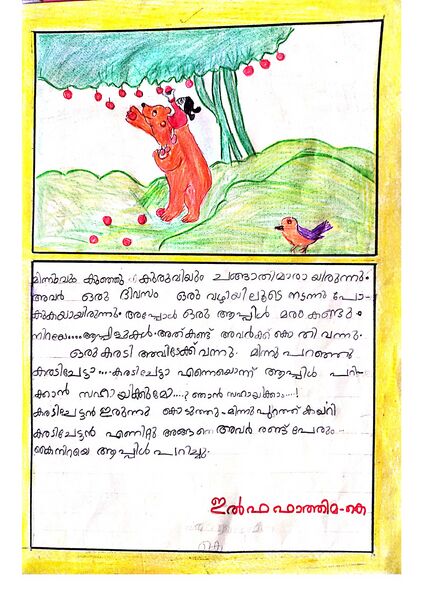 മിന്നുവും കുഞ്ഞു കുരുവിയും ചങ്ങാതിമാരായിരുന്നു.
അവർ ഒരു ദിവസം ഒരു വഴിയിലൂടെ നടന്നു പോ-
കുകയായിരുന്നു. അപ്പോൾ ഒരു ആപ്പിൾ മരം കണ്ടു.
നിറയെ....ആപ്പിളുകൾ. അത് കണ്ട് അവർക്ക് കൊതി വന്നു.
ഒരു കരടി അവിടേക്ക് വന്നു. മിന്നു പറഞ്ഞു
കരടിചേട്ടാ....കരടിചേട്ടാ എന്നെയൊന്ന് ആപ്പിൾ പറി-
ക്കാൻ സഹായിക്കുമോ....? ഞാൻ സഹായിക്കാം....!
കരടിചേട്ടൻ ഇരുന്നു കൊടുത്തു. മിന്നു പുറത്ത് കയറി
കരടിചേട്ടൻ എണീറ്റു അങ്ങനെ അവർ രണ്ട് പേരും
കൈനിറയെ ആപ്പിൾ പറിച്ചു.
ഇൽഫ ഫാത്തിമ-കെ